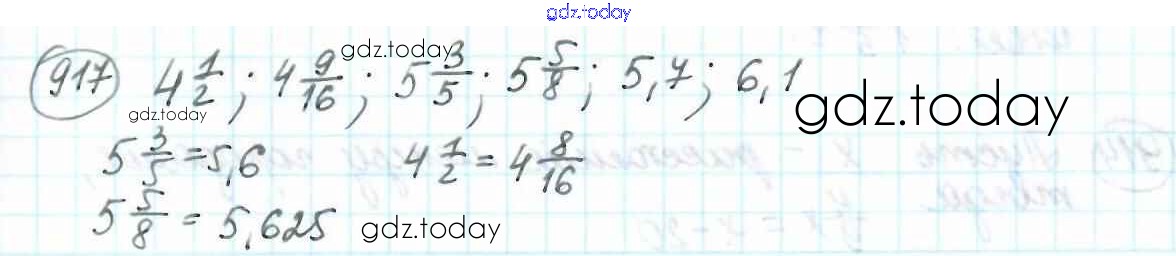 gdz.today
917 4 1/2; 4 9/16; 5 3/5; 5 5/8; 5,7; 6,1
gdz.today
gdz.today
gdz.today
5 3/5 = 5,6 4 1/2 = 4 8/16
5 5/8 = 5,625
gdz.today